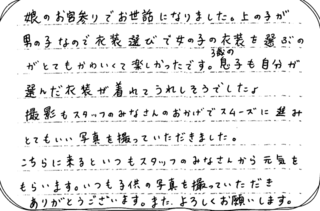 娘のお宮参りでお世話になりました。上の子が
男の子なので衣装選びで女の子の衣装を選ぶの
がとてもかわいくて楽しかったです。3歳の息子も自分が
選んだ衣装が着れてうれしそうでした♪
撮影もスタッフのみなさんのおかげでスムーズに進み
とてもいい写真を撮っていただきました。
こちらに来るといつもスタッフのみなさんから元気を
もらいます。いつも子供の写真を撮っていただき
ありがとうございます。また、よろしくお願いします。